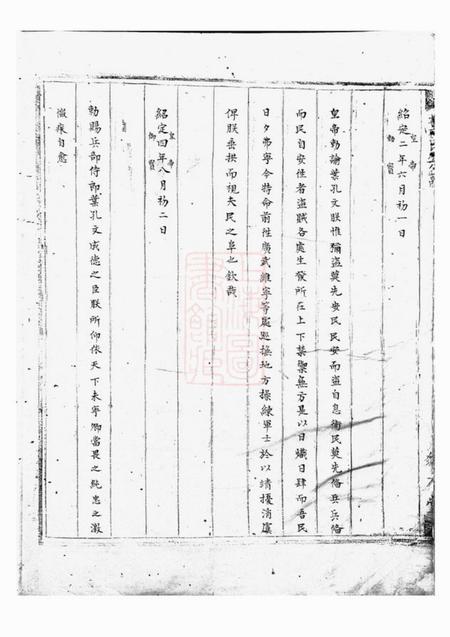 紹定二年六月初一日
皇帝
勅寶
皇帝勅諭葉孔文朕惟弭盜莫先安民民安而盜自息衛民莫先俻兵兵俻
而民自安佳者盜賊各處生發所在上下禁禦無方是以日熾日肆而吾民
日夕弗寧今特命前徃廣武維寧等處廵撫地方操練軍士於以靖擾消虞
俾朕垂拱而視夫民之阜也欽哉
紹定四年八月初二日
皇帝
御寶
勅賜兵部侍郎葉孔文咸德之臣朕所仰依天下未寧卿當畏之純忠之激
微疾自愈
上海圖
書館藏